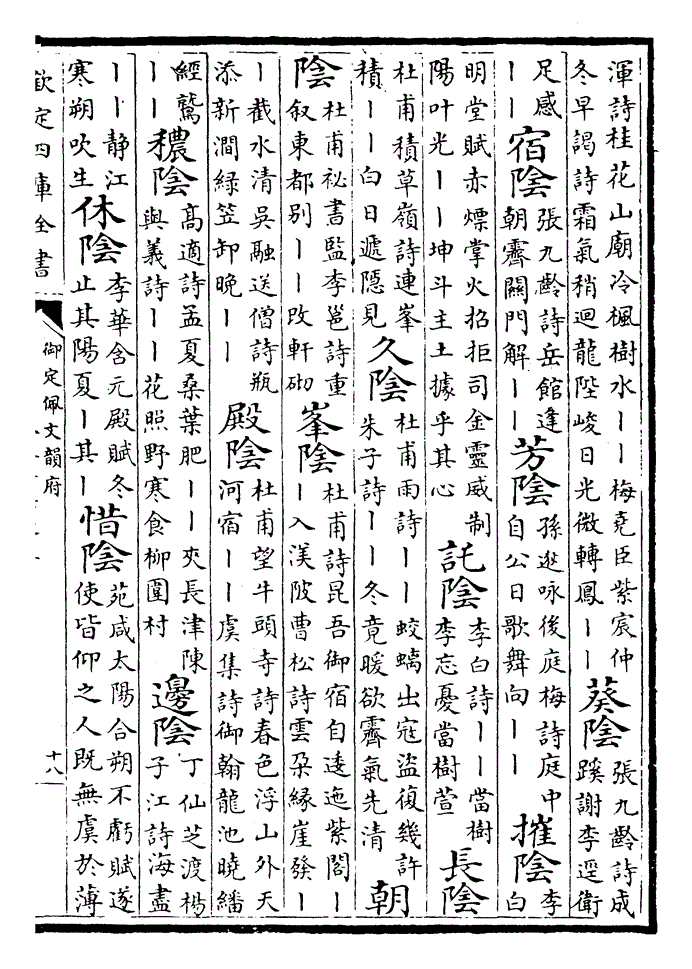 渾詩桂花山廟冷楓樹水丨丨梅堯臣紫宸仲
冬早謁詩霜氣稍迴龍陛峻日光微轉鳳丨丨
葵陰
張九齡詩成
蹊謝李逕衛
足感
丨丨
宿陰
張九齡詩岳館逢
朝霽關門解丨丨
芳陰
孫逖咏後庭梅詩庭中
自公日歌舞向丨丨
摧陰
李
白
明堂賦赤熛掌火招拒司金靈威制
陽叶光丨丨坤斗主土據乎其心
託陰
李白詩丨丨當樹
李忘憂當樹萱
長陰
杜甫積草嶺詩連峯
積丨丨白日遞隱見
久陰
杜甫雨詩丨丨蛟螭出寇盜復幾許
朱子詩丨丨冬竟暖欲霽氣先清
朝
陰
杜甫祕書監李邕詩重
叙東都別丨丨改軒砌
峯陰
杜甫詩昆吾御宿自逶迤紫閣丨
丨入渼陂曹松詩雲朵緣崖發丨
丨截水清吳融送僧詩瓶
添新澗綠笠卸晚丨丨
殿陰
杜甫望牛頭寺詩春色浮山外天
河宿丨丨虞集詩御翰龍池曉繙
經鷲
丨丨
穠陰
高適詩孟夏桑葉肥丨丨夾長津陳
與義詩丨丨花照野寒食柳圍村
邊陰
丁仙芝渡楊
子江詩海盡
丨丨静江
寒朔吹生
休陰
李華含元殿賦冬
止其陽夏丨其丨
惜陰
苑咸太陽合朔不虧賦遂
使皆仰之人既無虞於薄
欽定四庫全書
御定佩文韻府
十八